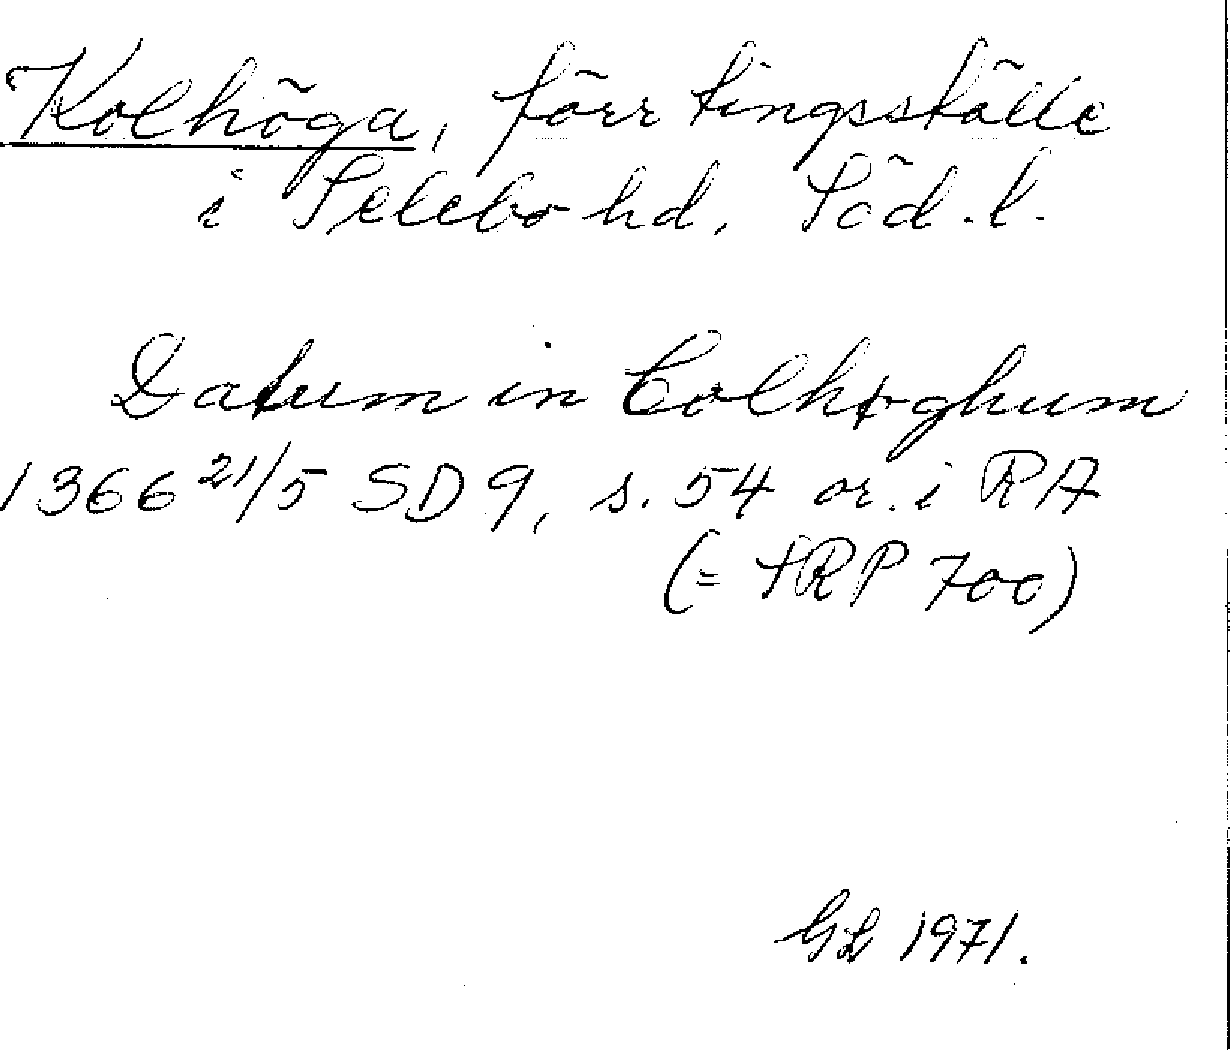 Kolhöga, förr tingsställe
i Selebo hd, Söd.l.
Datum in Colhøghum
1366 21/5 SD 9, s. 54 or. i RA
(= SRP 700)
GL 1971.